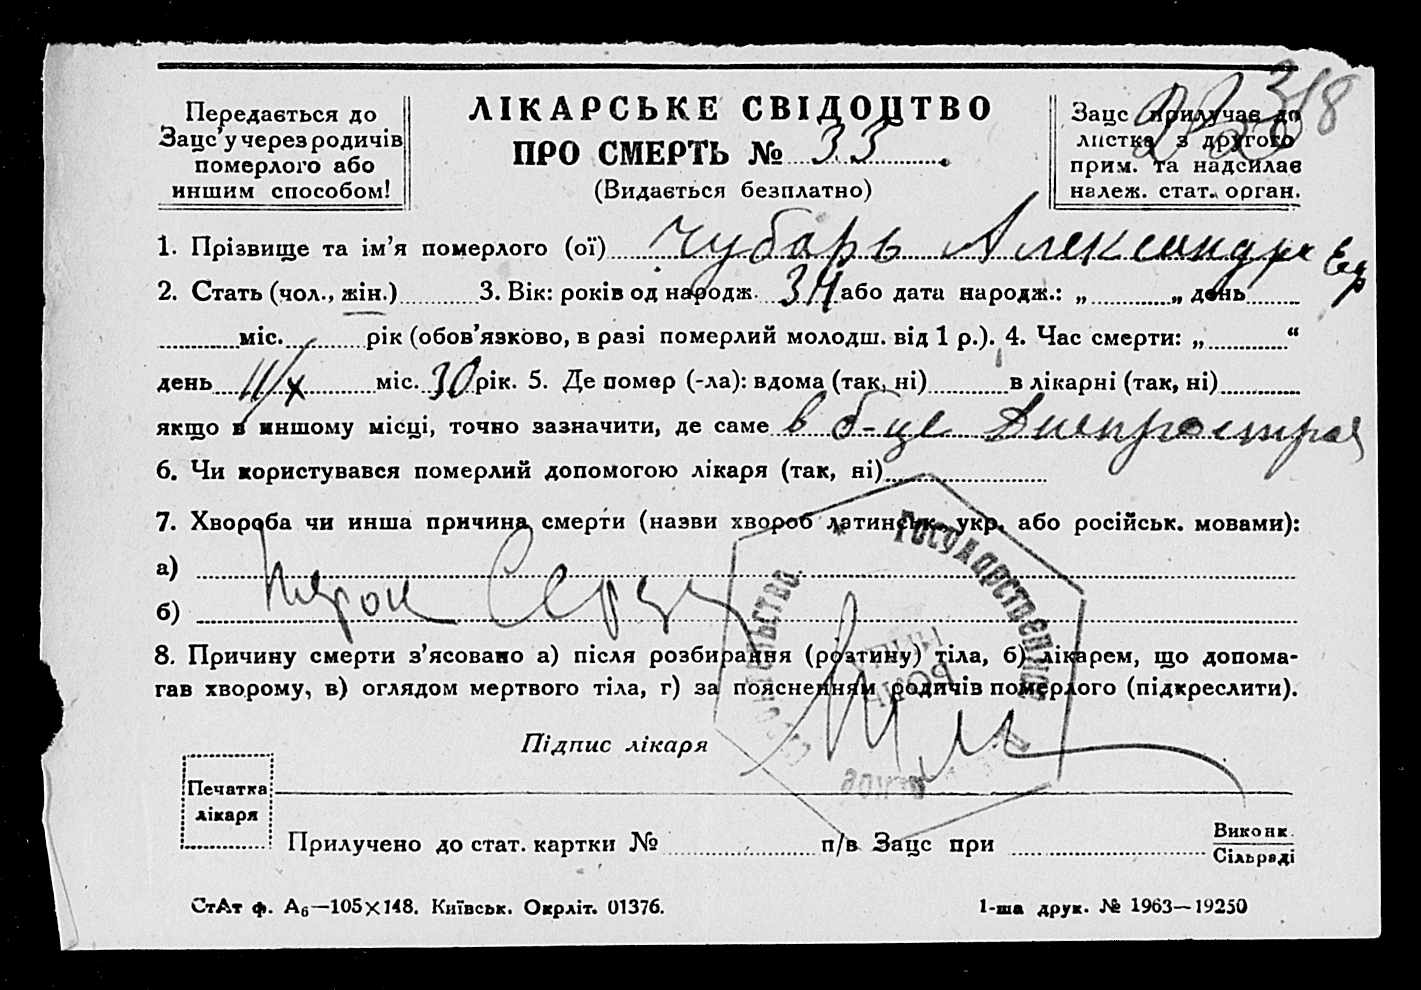 Передається до
Зацс'у через родичів
померлого або
иншим способом!
ЛІКАРСЬКЕ СВІДОЦТВО
ПРО СМЕРТЬ № 33.
(Видається безплатно)
318
Зацс прилучає до
листка з другого
прим. та надсилає
належ. стат. орган.
1. Прізвище та ім'я померлого (ої) Чубарь Александра
2. Стать (чол., жін.) 3. Вік: років од народж. 34 або дата народж.: „ „ день
міс. рік (обов'язково, в разі померлий молодш. від 1 р.). 4. Час смерти: „ “
день 11/X міс. 30 рік. 5. Де помер (-ла): вдома (так, ні) в лікарні (так, ні)
якщо в иншому місці, точно зазначити, де саме в б-це Днепростроя
6. Чи користувався померлий допомогою лікаря (так, ні)
7. Хвороба чи инша причина смерти (назви хвороб латинськ. укр. або російськ. мовами):
а)
б) Порок Сердца
8. Причину смерти з'ясовано а) після розбирання (розтину) тіла, б) лікарем, що допома-
гав хворому, в) оглядом мертвого тіла, г) за поясненням родичів померлого (підкреслити).
Государственное
Підпис лікаря
Печатка
лікаря
Прилучено до стат. картки № п/в Зацс при
Виконк.
Сільраді
СтАт ф. А6—105×148. Київськ. Окрліт. 01376.
1-ша друк. № 1963—19250